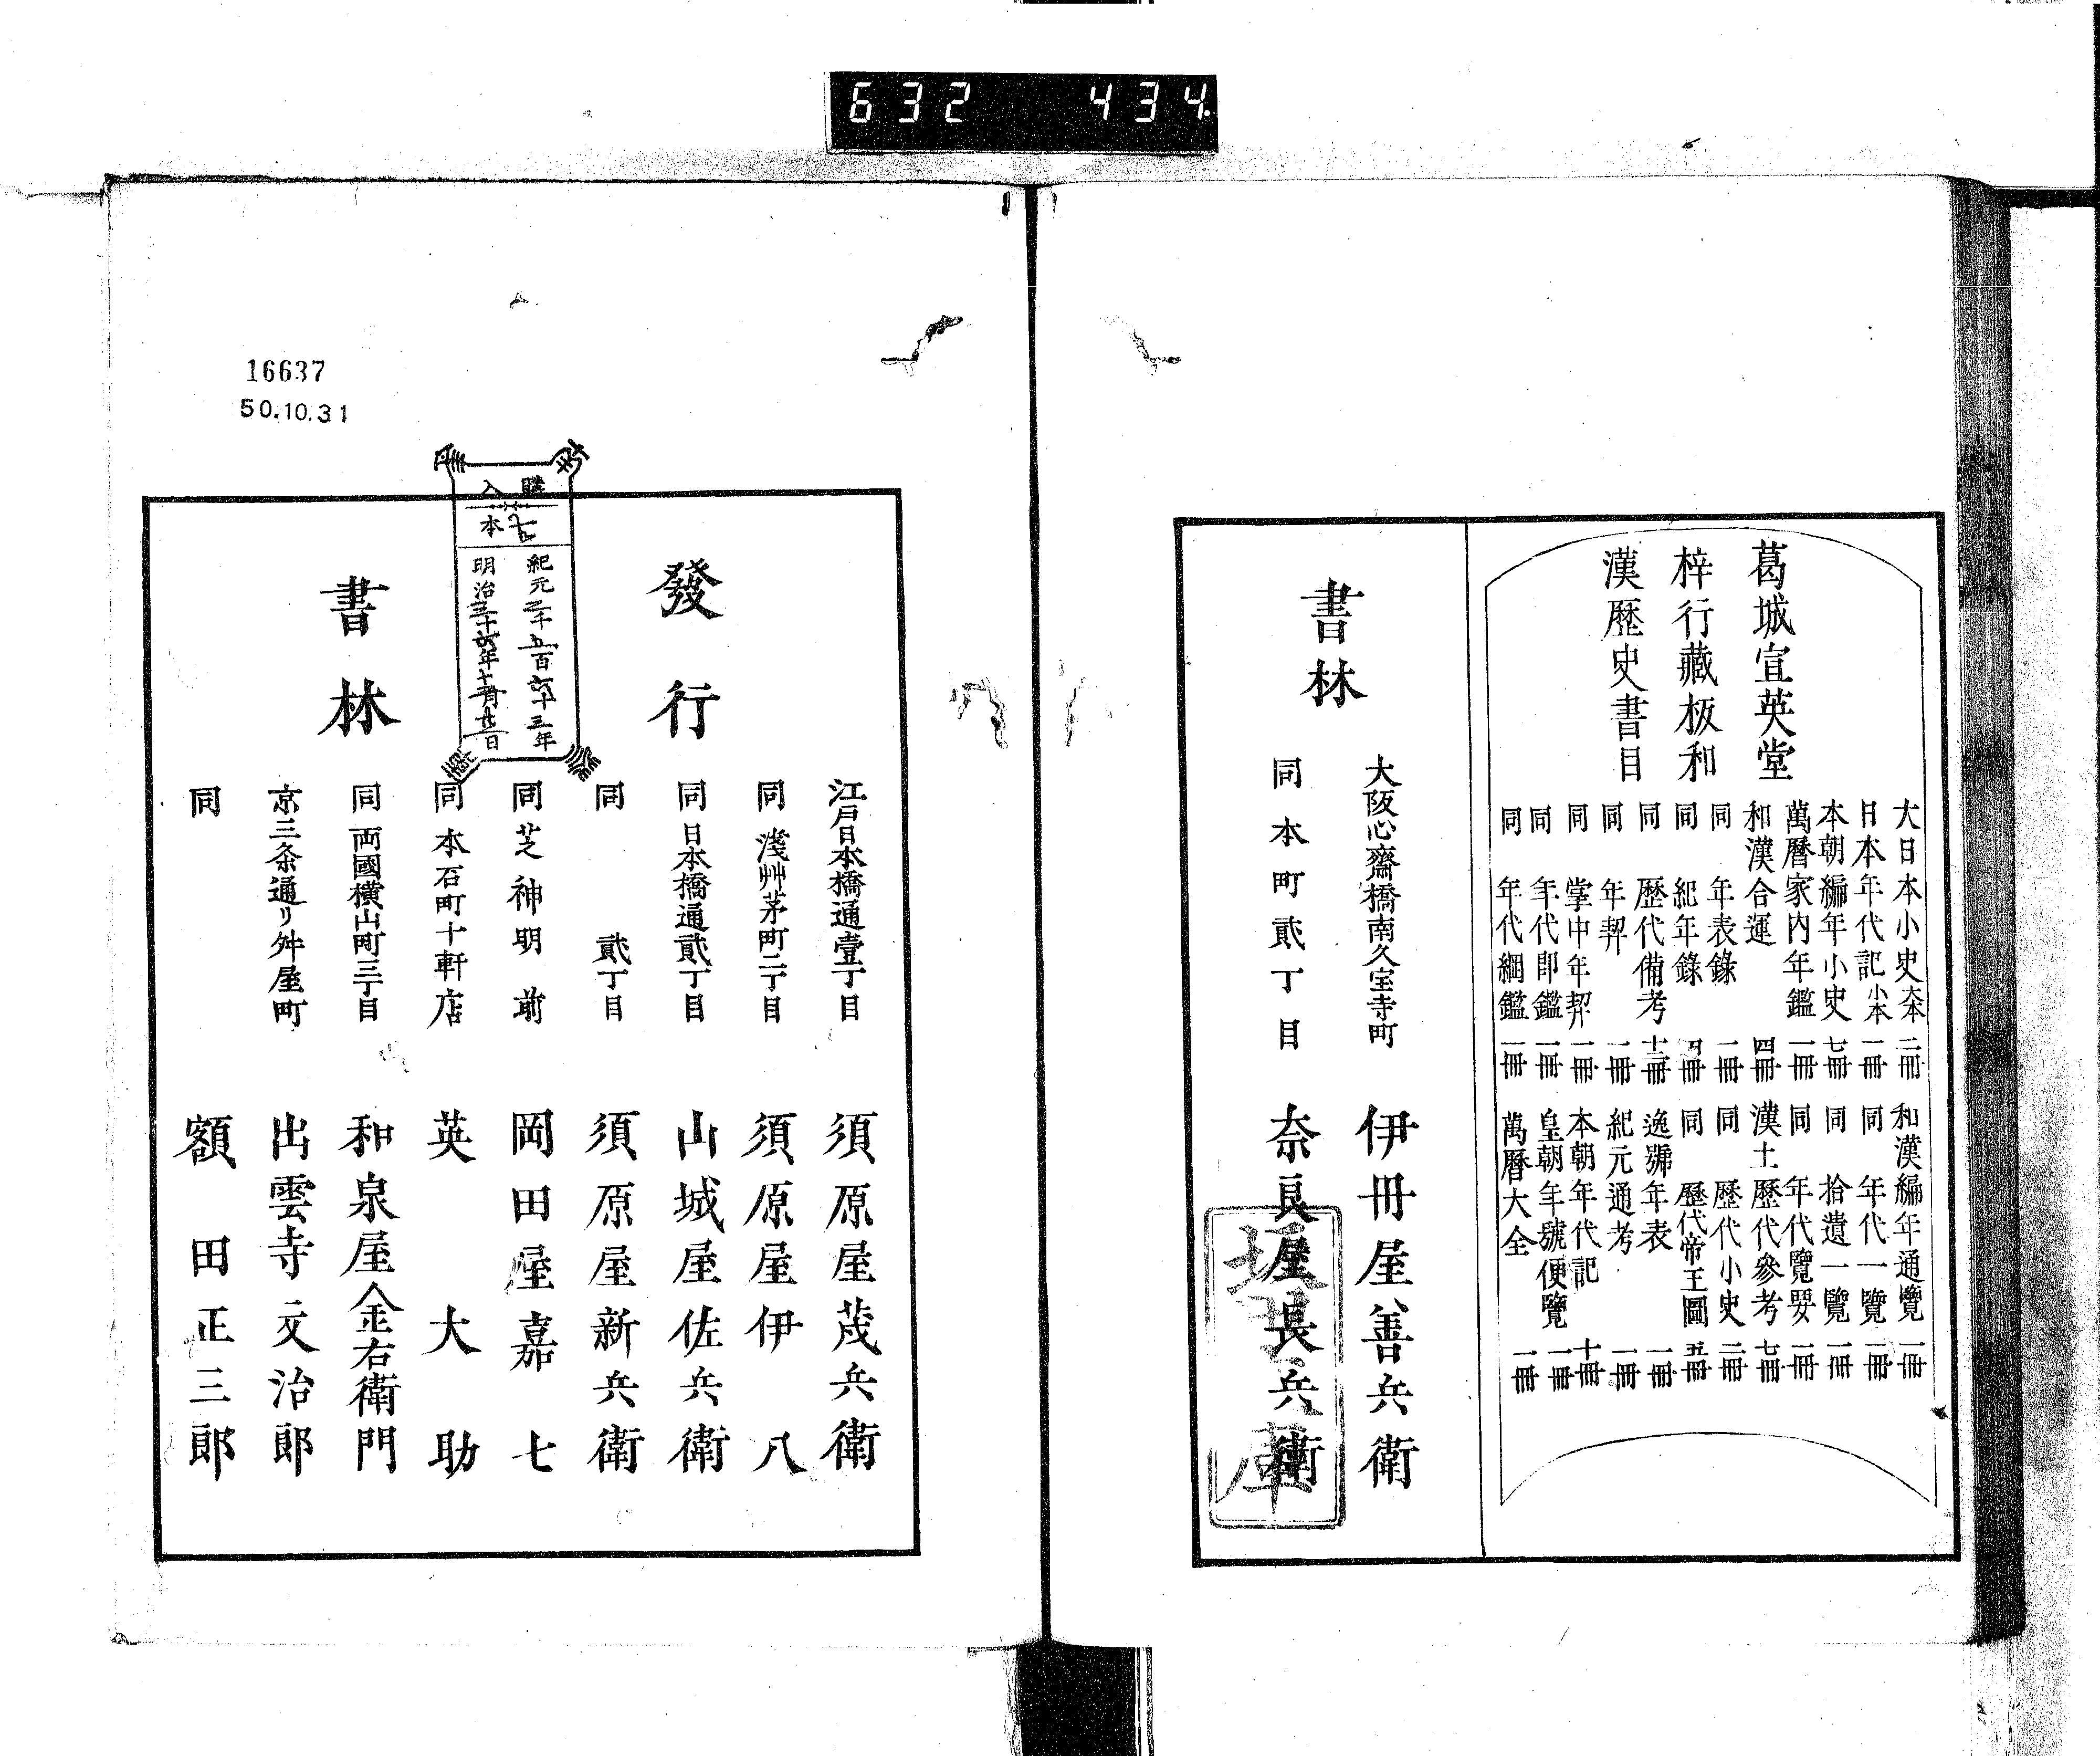 632 434
葛城宣英堂
梓行藏板和
漢歷史書目
大日本小史 大本 二冊
日本年代記 小本 一冊
本朝編年小史 七冊
萬曆家內年鑑 一冊
和漢合運 四冊
同 年表錄 一冊
同 紀年錄 四冊
同 歷代備考 十二冊
同 年契 一冊
同 掌中年契 一冊
同 年代即鑑 一冊
同 年代綱鑑 一冊
和漢編年通覽 一冊
同 年代一覽 一冊
同 拾遺一覽 一冊
同 年代覽要 一冊
漢土歷代參考 七冊
同 歷代小史 二冊
同 歷代帝王圖 五冊
逸號年表 一冊
紀元通考 一冊
本朝年代記 十冊
皇朝年號便覽 一冊
萬曆大全 一冊
書林
大阪心齋橋南久宝寺町 伊丹屋善兵衛
同本町貳丁目 奈良屋長兵衛
16637
50.10.31
購入
本
紀元二千五百六十三年
明治三十六年十一月廿日
發行
書林
江戶日本橋通壹丁目 須原屋茂兵衛
同 淺艸茅町二丁目 須原屋伊八
同 日本橋通貳丁目 山城屋佐兵衛
同 貳丁目 須原屋新兵衛
同 芝神明前 岡田屋嘉七
同 本石町十軒店 英大助
同 両國横山町三丁目 和泉屋金右衛門
京三条通リ舛屋町 出雲寺文治郎
同 額田正三郎